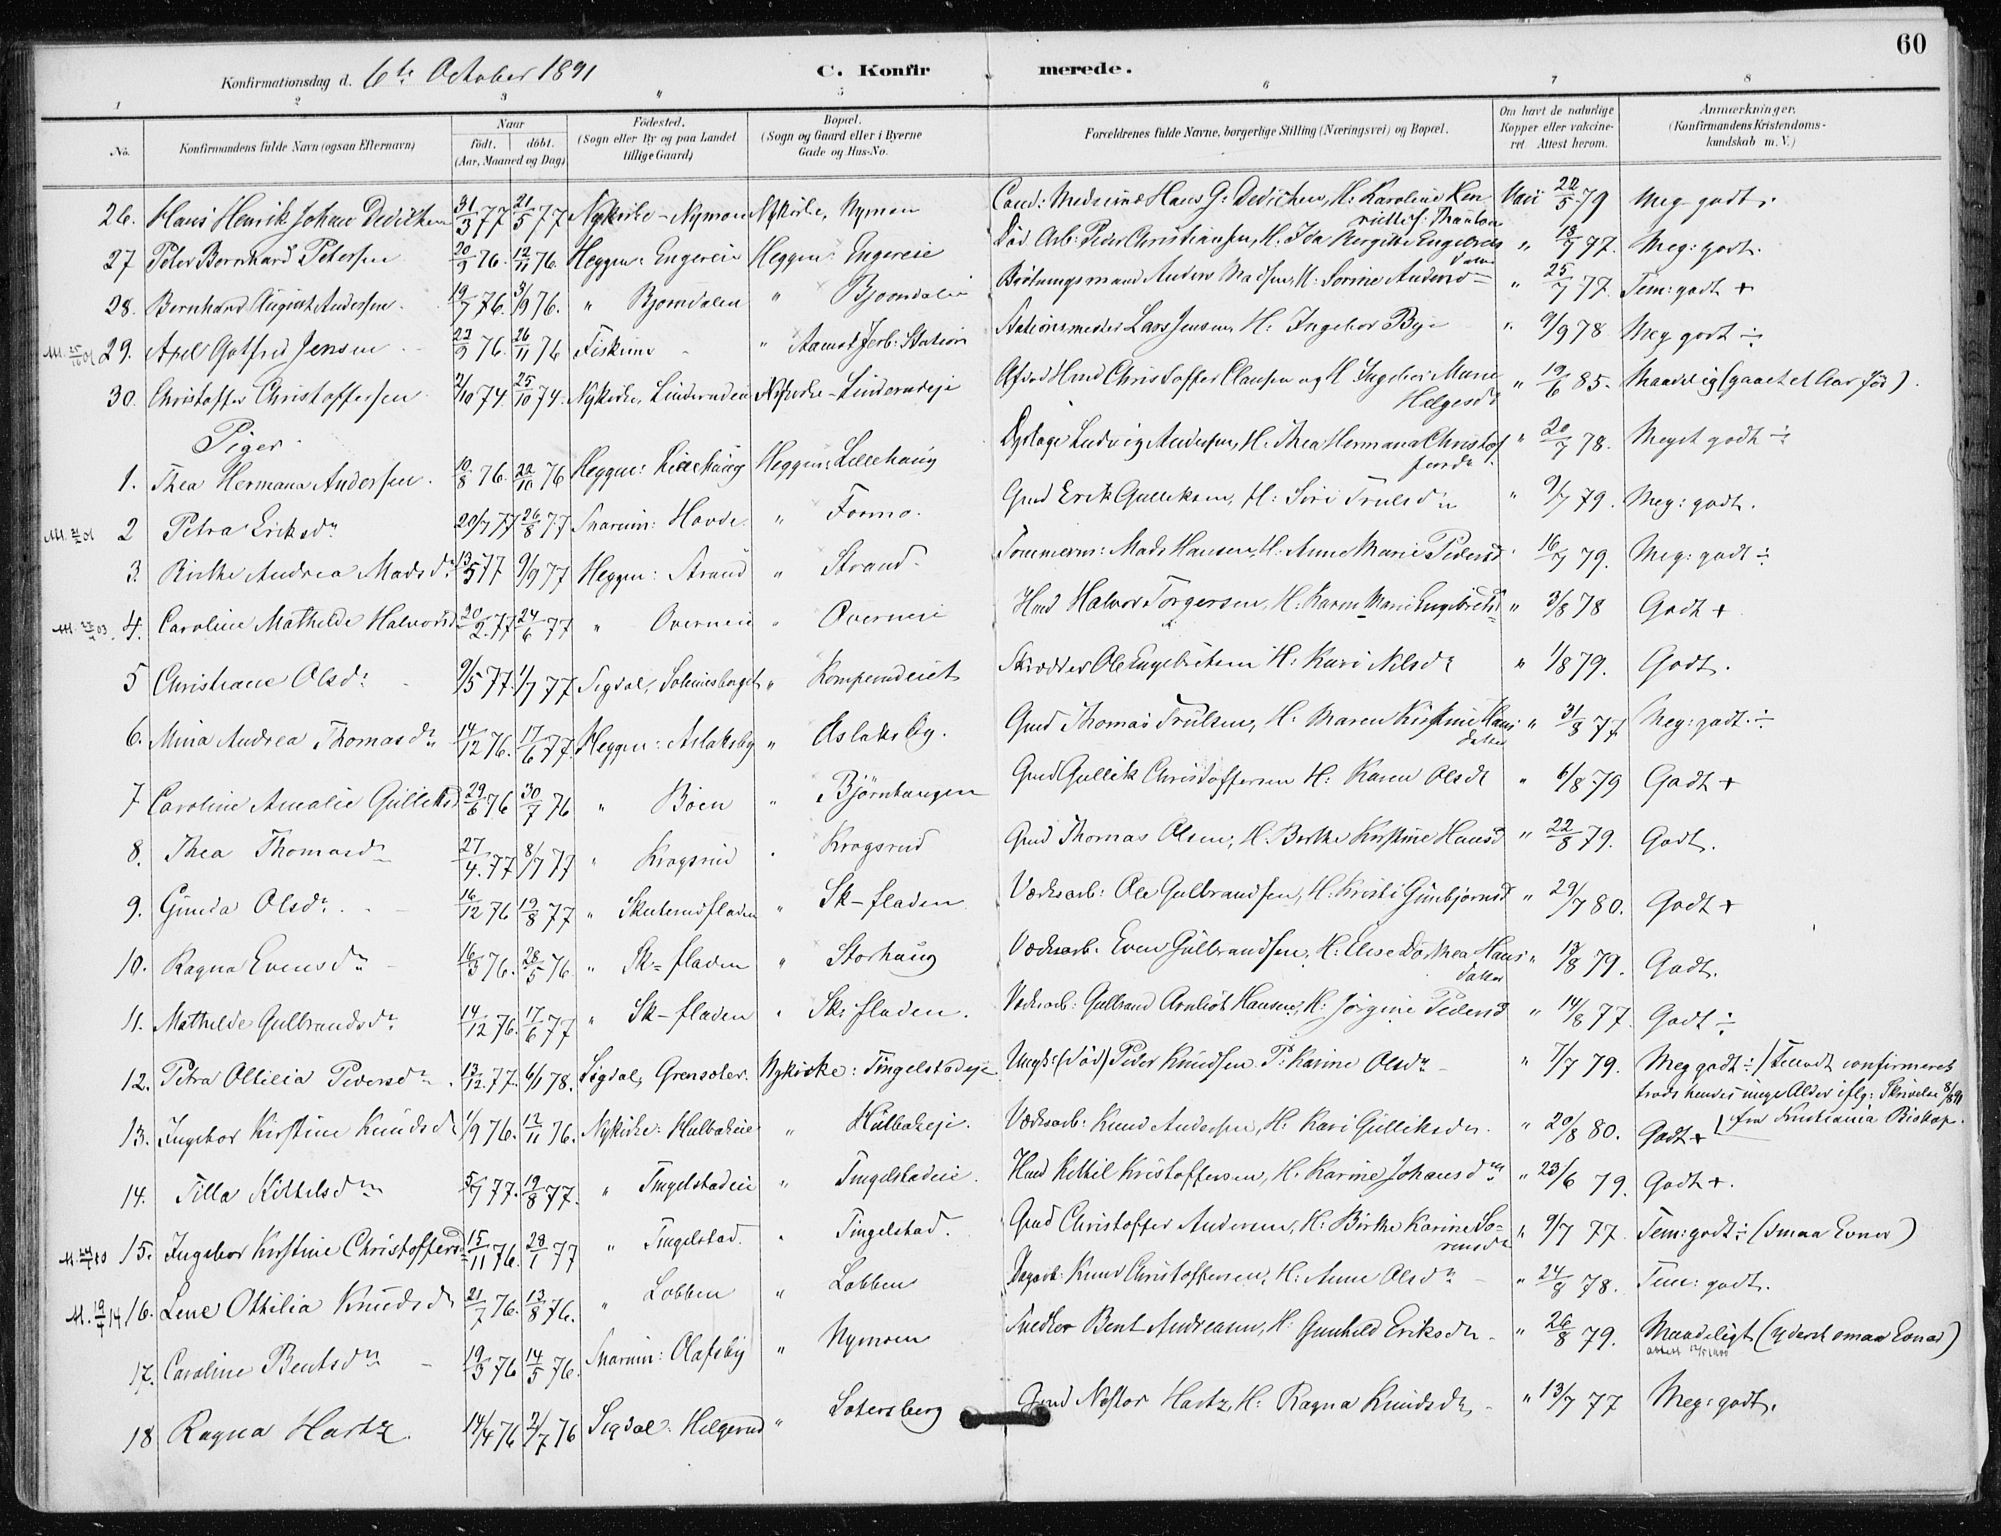 60
Konfirmationsdag d. 6te October 1891 C. Konfirmerede.
1 2 3 " 5 6 7 8
No. Konfirmandens fulde Navn (ogsaa Efternavn) Naar født. døbt. (Aar, Maaned og Dag) Fødested. (Sogn eller By og paa Landet tillige Gaard) Bopæl. (Sogn og Gaard eller i Byerne Gade og Hus-No. Forældrenes fulde Navne, borgerlige Stilling (Næringsvei) og Bopæl. Om havt de naturlige Kopper eller vakcineret. Attest herom. Anmærkninger. (Konfirmandens Kristendomskundskab m. V.)
26. Hans Henrik Johan Dedichen 31/3 77 21/5 77 Nykirke - Nymoen Nykirke, Nymoen Cand: Medicinæ Hans G: Dedichen, H: Karoline Hen Vacc 22/5 79 Meg godt.
27 Peter Bernhard Petersen 20/9 76. 12/11 76. Heggen: Engereie Heggen: Engereie Død Arb: Peder Christiansen, H. Ida Bergitte Engebrets datter " 18/7 77. Meg: godt.
28. Bernhard August Andersen. 19/7 76. 3/9 76. " Bjorndalen " Bjorndalen Anders Madsen, H: Sorine Andersd " 25/7 77. Tem: godt +
M. 25/10 01 29. Axel Gotfred Jensen 22/9 76. 26/11 76 Fiskum " Aamot Jerb: Station Stationsmester Lars Jensen, H: Ingebor Bye " 9/9 78 Meg godt ÷
30. Christoffer Christoffersen 2/10 74. 25/10 74. Nykirke, Linderudeie Nykirke - Linderudeje Hmd Christoffer Clausen og H Ingebor Marie Helgesdr " 19/6 85. Maadelig (gaaet et Aar før).
Piger
1. Thea Hermana Andersen. 10/8 76. 22/10 76 Heggen: Lillehaug Heggen: Lillehaug Ludvig Andersen, H. Thea Hermana Christoffersdr. " 20/7 78. Meget godt ÷
M. 01 2 Petra Eriksdr 20/7 77 26/8 77 Snarum: Hovde " Fonno. Gmd Erik Gulliksen, H: Siri Trulsdr " 9/7 79. Meg: godt.
3. Birthe Andrea Madsdr 13/5 77 9/9 77 Heggen: Strand " Strand. Tommerm: Mads Hansen, H: Anne Marie Pedersd " 16/7 79. Meg: godt ÷
M. 03. 4. Caroline Mathilde Halvorsd 20/2 77. 24/6 77 " Overneie " Overneie Hmd Halvor Torgersen, H. Karen Marie Engebretsd " 3/8 78 Godt +
5 Christiane Olsdr 9/5 77. 1/7 77. Sigdal, Solumsberget " Kompendeiet Skrædder Ole Engebretsen H: Kari Nilsdr " 1/8 79. Godt.
6. Mina Andrea Thomasdr 14/12 76. 17/6 77. Heggen: Aslaksby " Aslaksby. Gmd Thomas Trulsen, H. Maren Kirstine Hans datter " 31/8 77 Meg: godt. ÷
7 Caroline Amalie Gulliksd 29/6 76 30/7 76 " Böen " Bjørnhaugen Gmd Gullik Christoffersen H: Karen Olsdr " 6/8 79 Godt +
8. Thea Thomasdr 27/4. 77 8/7 77 " Kragsrud " Kragsrud Gmd Thomas Olsen, H. Berthe Kirstine Hansd " 22/8 79. Godt.
9. Gunda Olsdr. 16/12 76 19/8 77 " Skuterudfladen " Sk-fladen Værksarb: Ole Gulbrandsen, H. Kristi Gunbjørnsd " 29/7 80. Godt +
10. Ragna Evensdr 16/3 76. 28/5 76 " Sk-fladen " Storhaug Værksarb. Even Gulbrandsen, H: Elise Dorthea Hans datter " 18/8 79. Godt.
11. Mathilde Gulbrandsdr 14/12 76. 17/6 77 " Sk-fladen " Sk: fladen. Værksarb: Gulbrand Arnliot Hansen, H: Jörgine Pedersd " 14/8 77. Godt ÷
12. Petra Ottilia Pedersdr 13/12 77. 6/1 78. Sigdal, Grensoter. Nykirke: Tingelstadeje Ungk: (död) Peder Knudsen P: Karine Olsdr " 7/7 79. Meg godt ÷ / Tilladt confirmeret
trods hendes unge Alder iflg: Skrivelse 8/8 91
fra Kristiania Biskop.
13. Ingebor Kirstine Knudsdr 1/9 76. 12/11 76. Nykirke: Holbækeie " Holbækeje. Værksarb: Knud Andersen, H: Kari Gulliksdr " 20/8 80. Godt +
14. Tilla Kittelsdr 5/7 77. 19/8 77. " Tingelstadeie " Tingelstadeie. Hmd Kittil Kristoffersen, H. Karine Johansdr " 23/6 79. Godt +.
15. Ingebor Kirstine Christoffersd 15/11 76. 28/1 77 " Tingelstad. " Tingelstad. Gmd Christoffer Andersen, H: Birthe Karine Sörensdr " 9/7 77. Tem: godt ÷ (smaa Evner)
M. 19/4 14 16. Lene Othilia Knudsdr 21/7 76. 13/8 76. " Lobben " Lobben Dagarb: Knud Christoffersen, H: Anne Olsdr " 24/9 78. Tem: godt.
17. Caroline Bentsdr 19/3 76 14/5 76. Snarum: Olafsby " Nymoen Snedker Bent Andreasen, H: Gunhild Eriksdr " 26/8 79. Maadeligt (yderst smaa Evner)
18 Ragna Hartz 14/4 76 2/7 76 Sigdal: Helgerud " Sotersberg Gmd Nestor Hartz, H: Ragna Knudsdr " 13/7 77 Meg: godt.